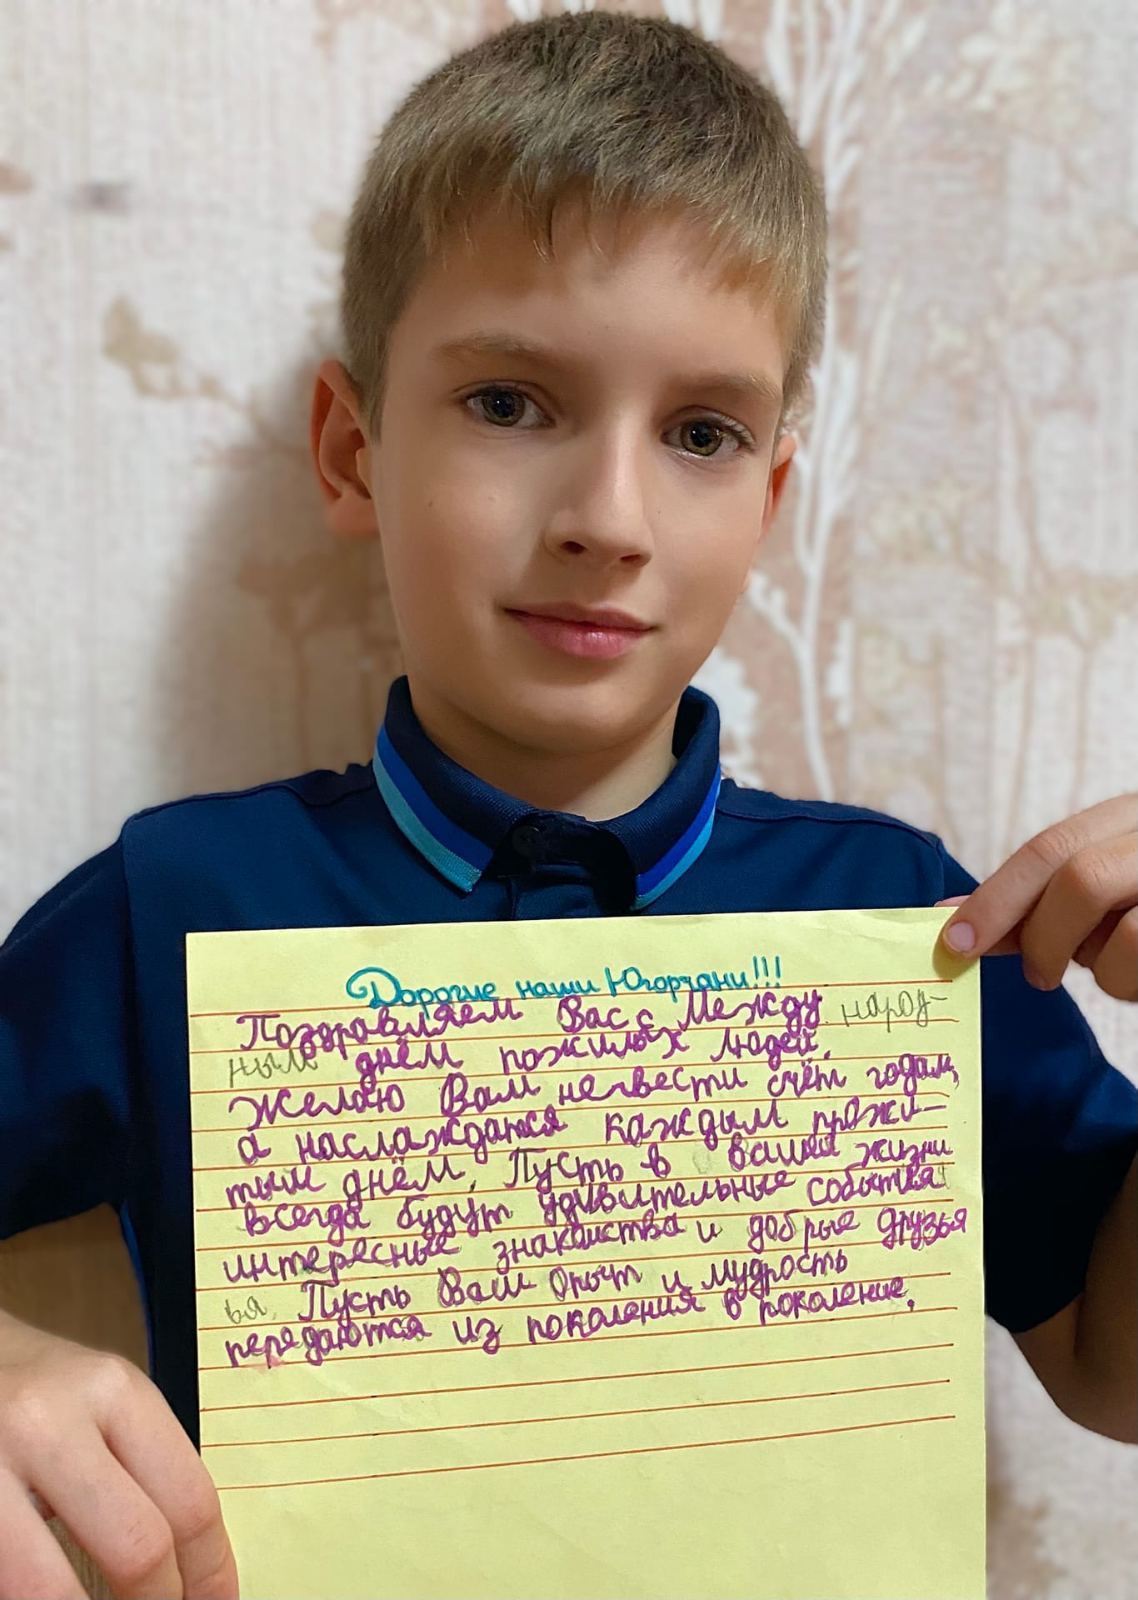 Дорогие наши Югорчани!!!
Поздровляем Вас с Между народ-
ным днём пожилых людей.
Желаю Вам не ввести счёт годам,
а наслаждатся каждым прожи-
тым днём. Пусть в вашей жизни
всегда будут удивительные события
интересные знакомства и добрые друзья
ья. Пусть Ваш Опыт и мудрость
передаются из поколения в поколение.